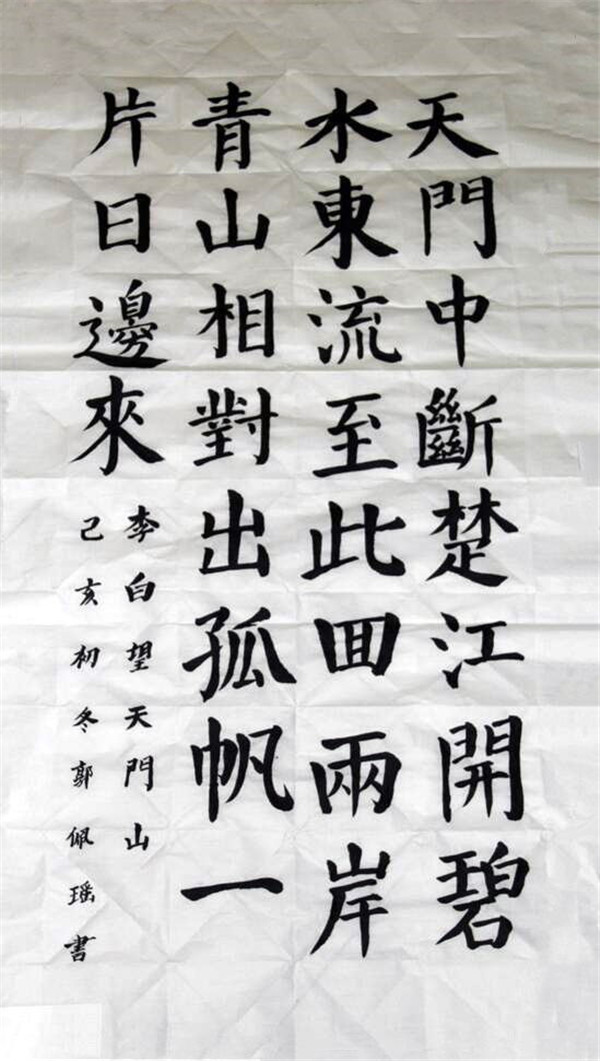 天門中斷楚江開碧
水東流至此回兩岸
青山相對出孤帆一
片日邊來
李白望天門山
己亥初冬郭佩瑶書